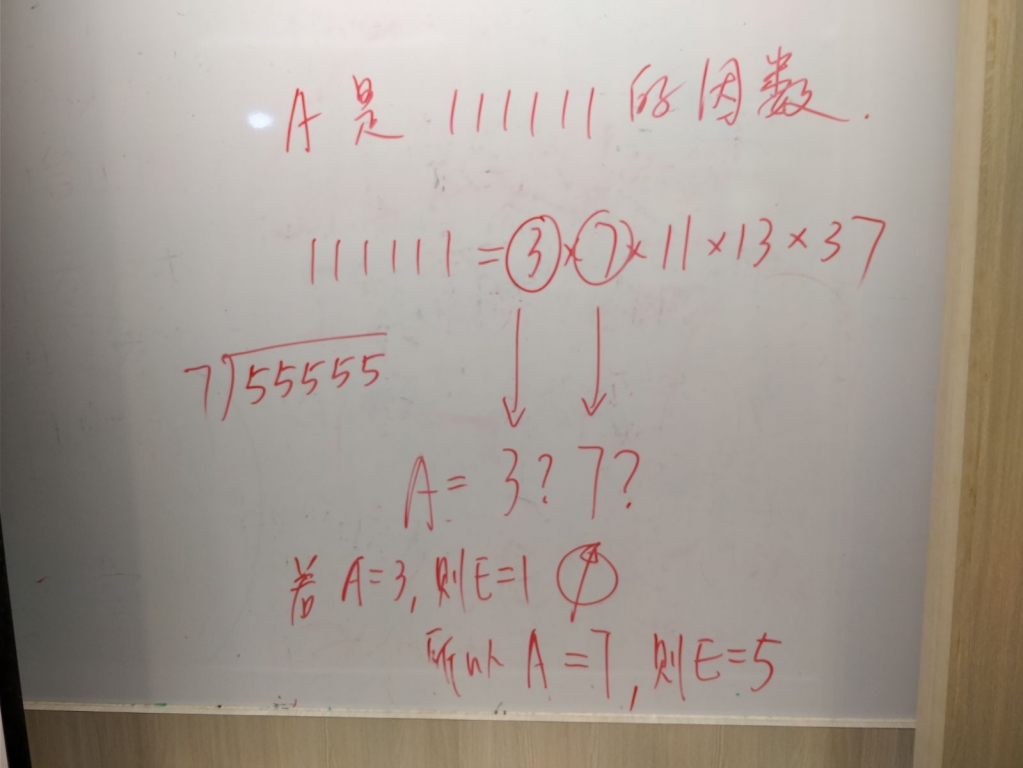 A是 111111的因数.
111111=3×7×11×13×37
7)55555
A=3?7?
若A=3,则E=1
所以A=7,则E=5